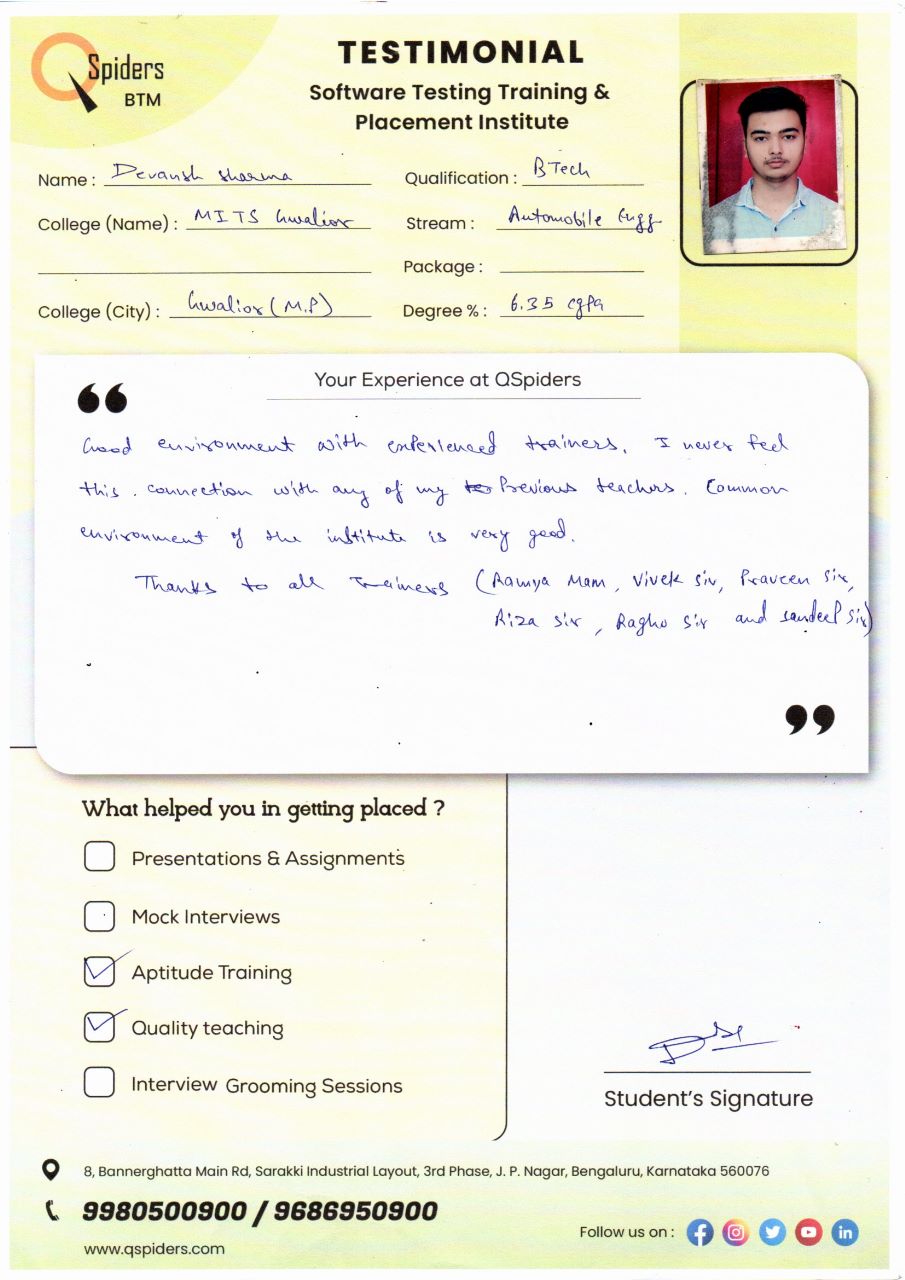 QSpiders
BTM
TESTIMONIAL
Software Testing Training &
Placement Institute
Name : Devansh Sharma
Qualification : BTech
College (Name) : MITS Gwalior
Stream : Automobile Engg
Package :
College (City) : Gwalior (M.P)
Degree % : 6.35 cgpa
Your Experience at QSpiders
Good environment with experienced trainers. I never feel
this connection with any of my Previous teachers. Common
environment of the institute is very good.
Thanks to all Trainers (Ramya Mam, Vivek Sir, Praveen Sir,
Riza Sir, Ragho Sir and Sandeep Sir)
What helped you in getting placed ?
Presentations & Assignments
Mock Interviews
Aptitude Training
Quality teaching
Interview Grooming Sessions
Student's Signature
8, Bannerghatta Main Rd, Sarakki Industrial Layout, 3rd Phase, J. P. Nagar, Bengaluru, Karnataka 560076
9980500900 / 9686950900
www.qspiders.com
Follow us on :